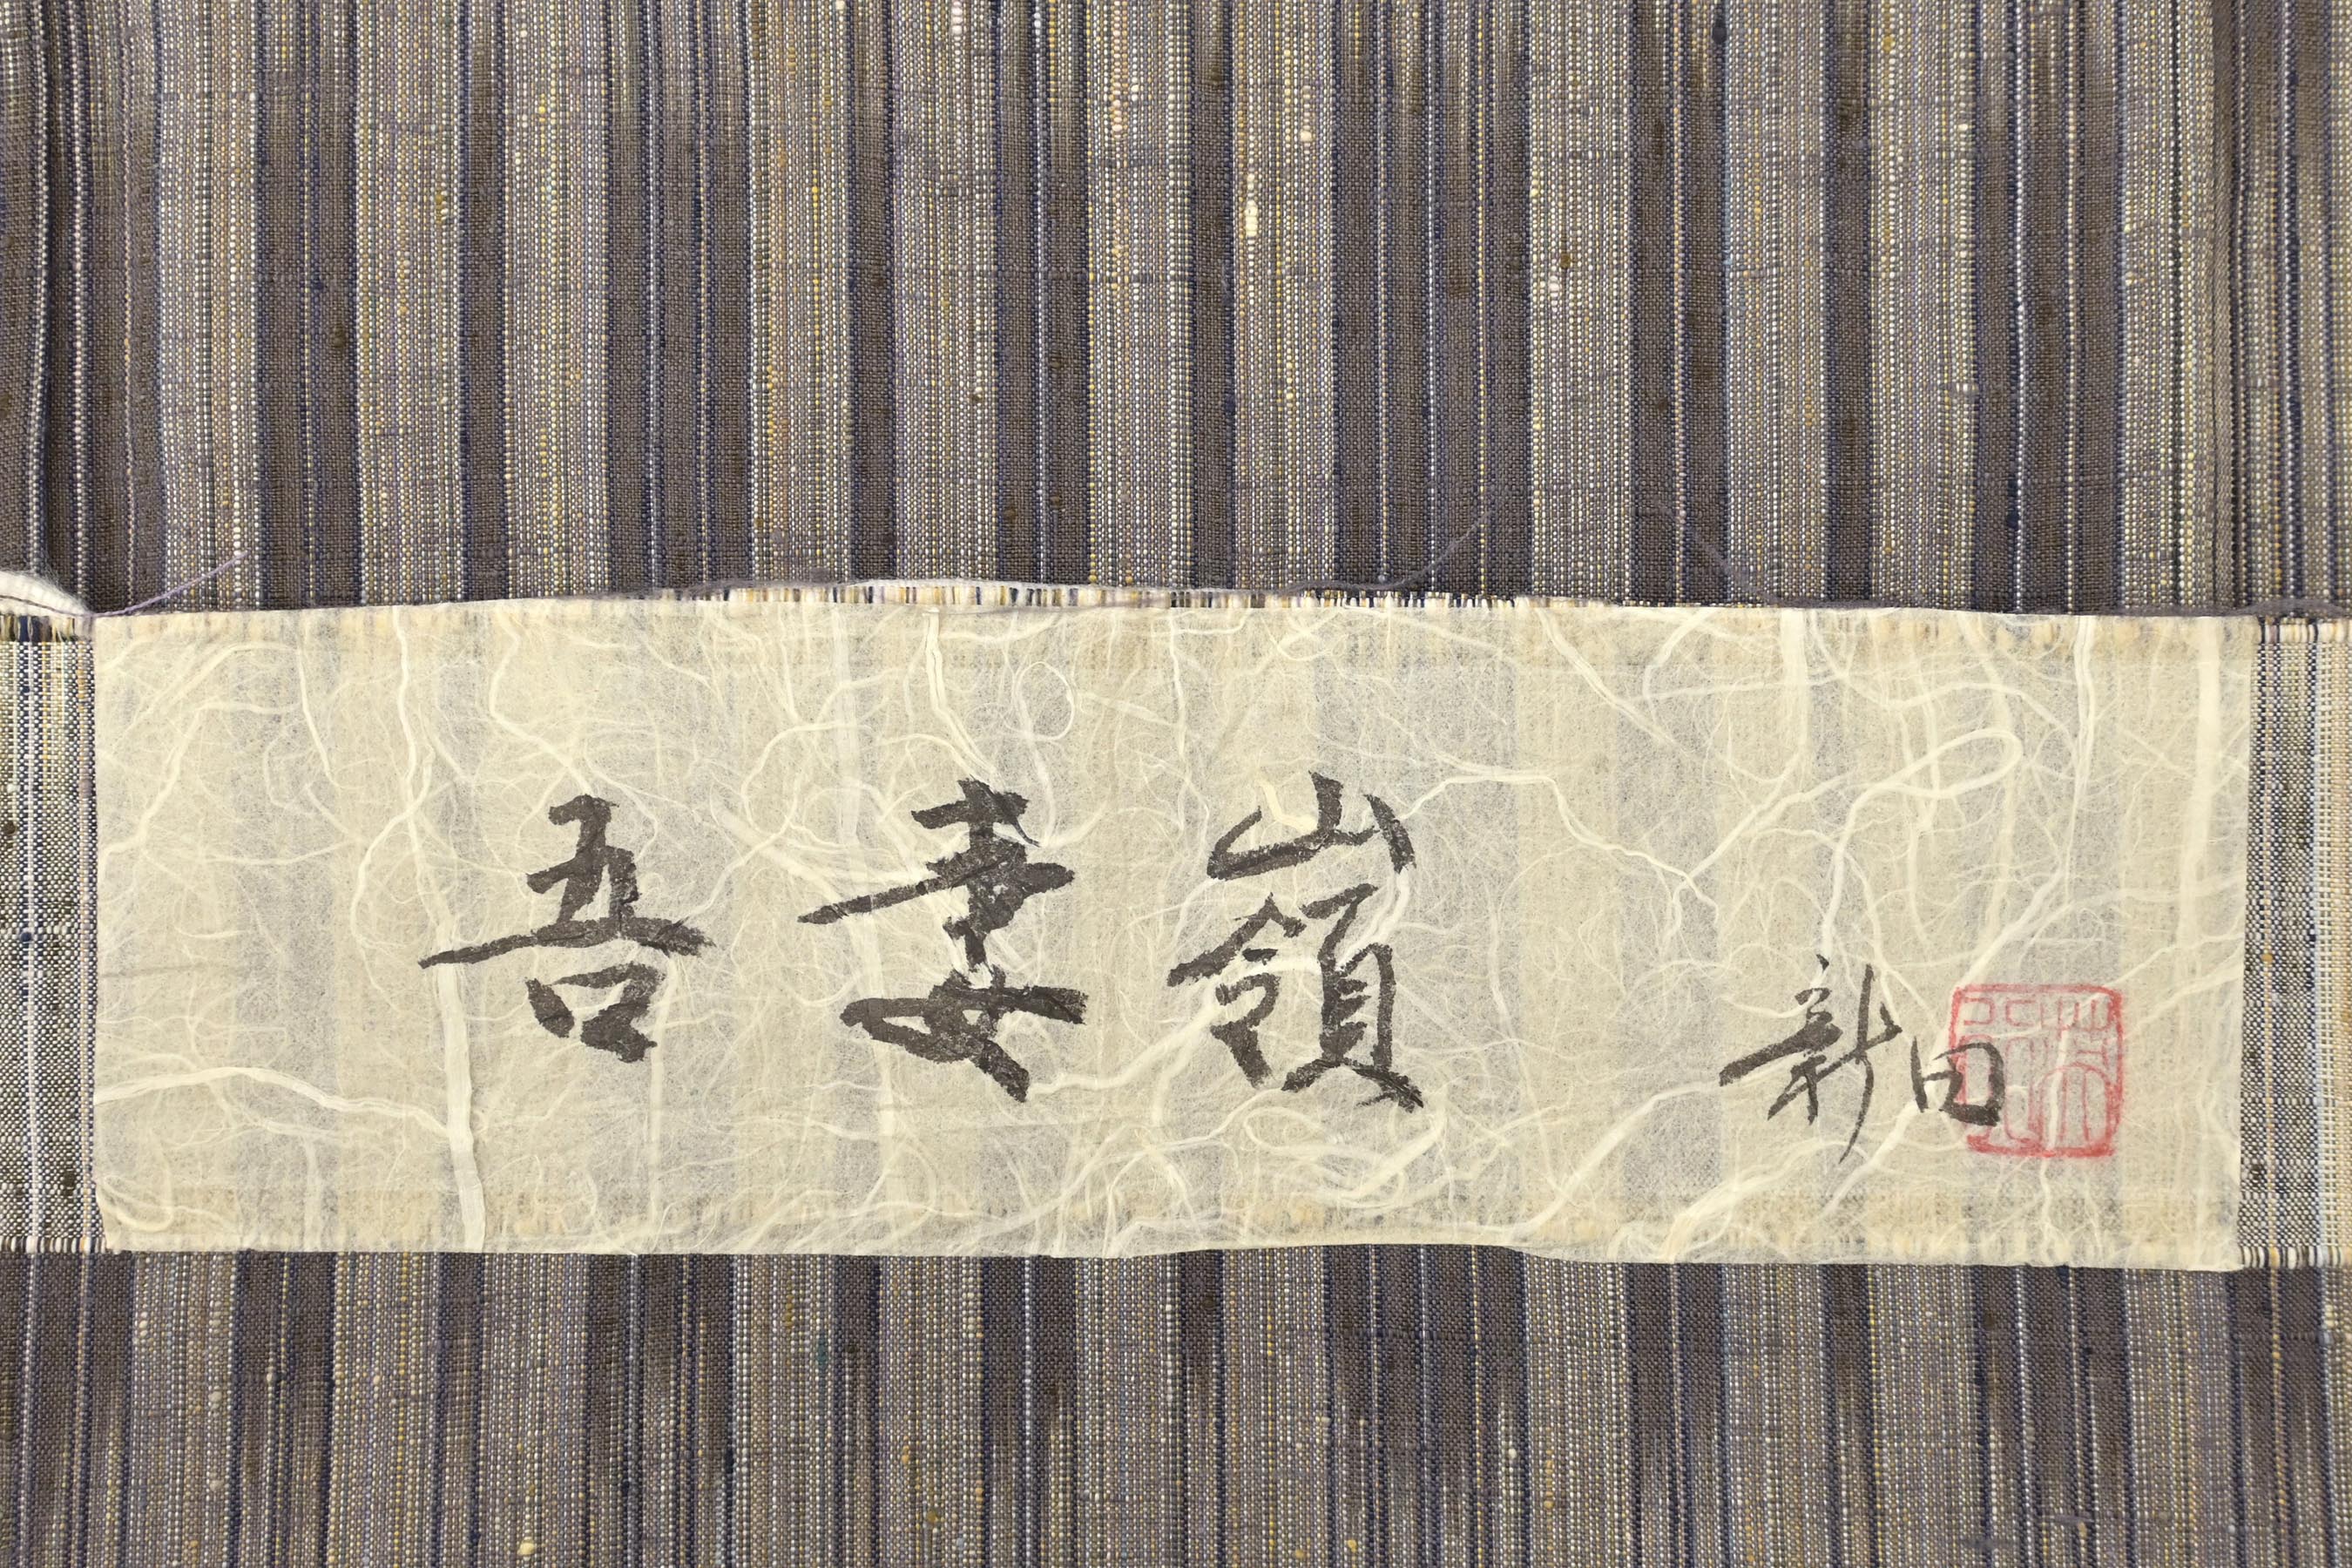 吾妻嶺
新田